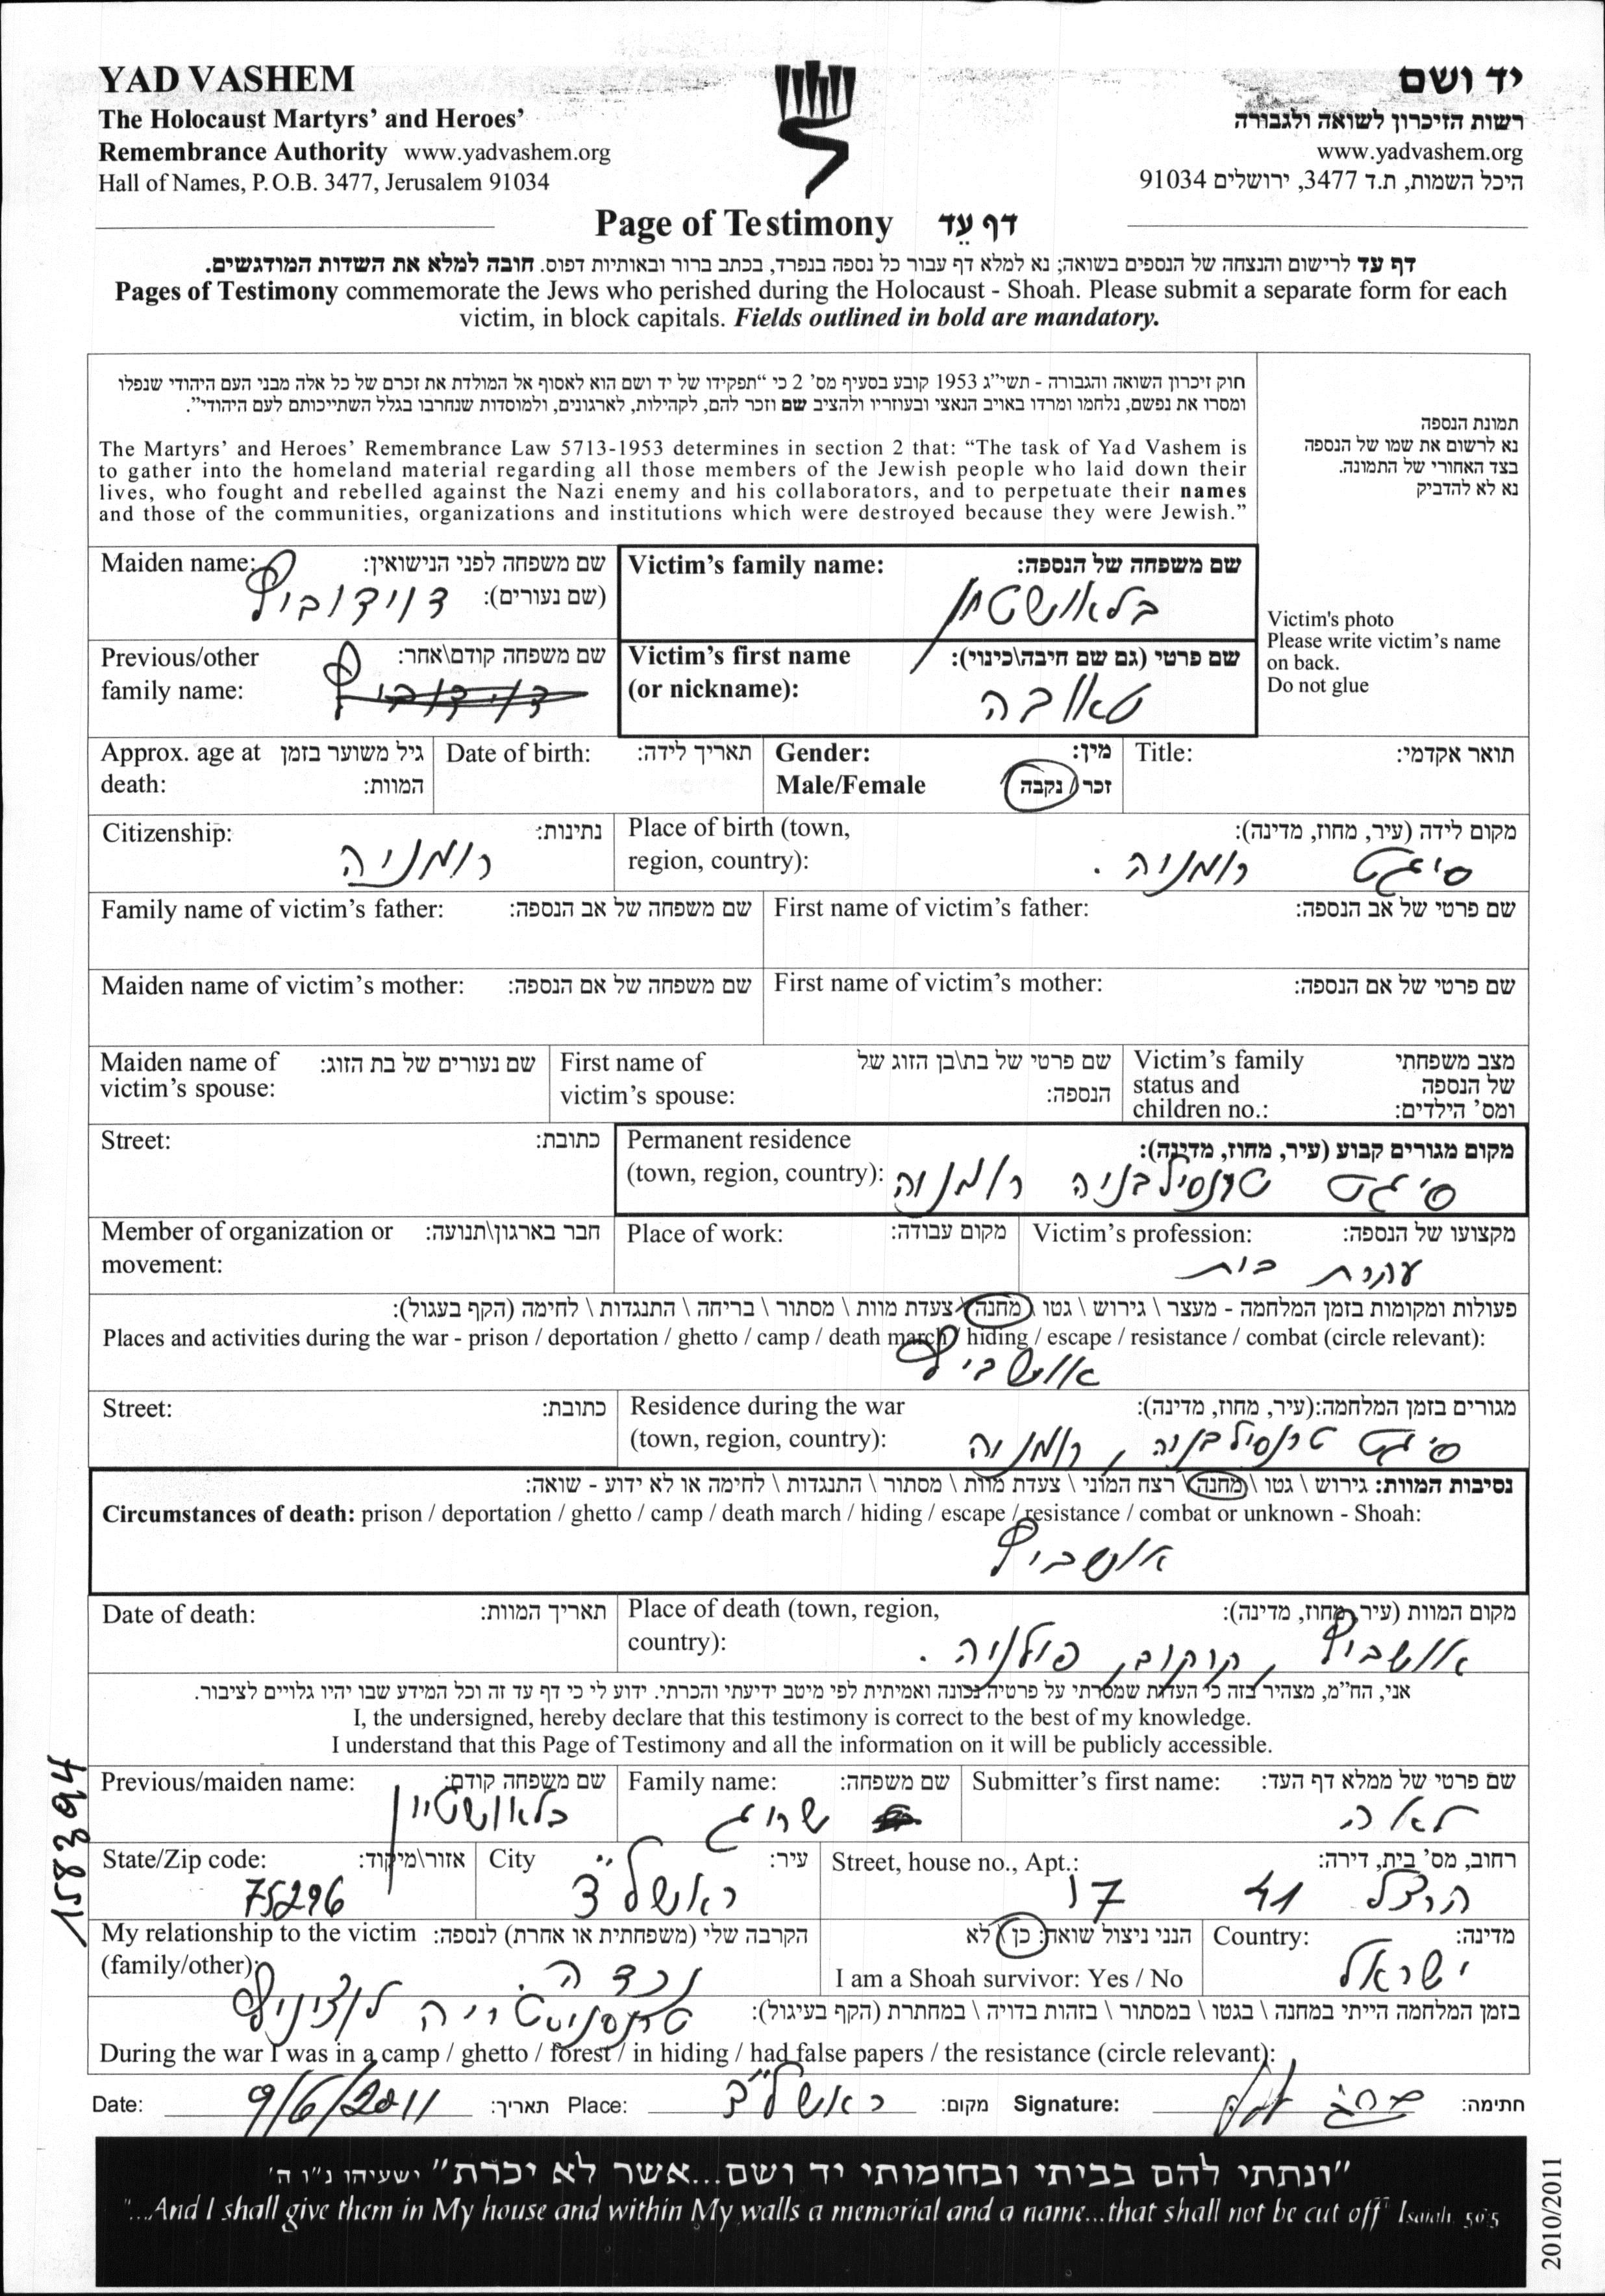 YAD VASHEM
The Holocaust Martyrs' and Heroes'
Remembrance Authority www.yadvashem.org
Hall of Names, P.O.B. 3477, Jerusalem 91034
יד ושם
רשות הזיכרון לשואה ולגבורה
www.yadvashem.org
היכל השמות, ת.ד 3477, ירושלים 91034
Page of Testimony דף עֵד
דף עד לרישום והנצחה של הנספים בשואה; נא למלא דף עבור כל נספה בנפרד, בכתב ברור ובאותיות דפוס. חובה למלא את השדות המודגשים.
Pages of Testimony commemorate the Jews who perished during the Holocaust - Shoah. Please submit a separate form for each
victim, in block capitals. Fields outlined in bold are mandatory.
חוק זיכרון השואה והגבורה - תשי"ג 1953 קובע בסעיף מס' 2 כי "תפקידו של יד ושם הוא לאסוף אל המולדת את זכרם של כל אלה מבני העם היהודי שנפלו
ומסרו את נפשם, נלחמו ומרדו באויב הנאצי ובעוזריו ולהציב שם וזכר להם, לקהילות, לארגונים, ולמוסדות שנחרבו בגלל השתייכותם לעם היהודי".
The Martyrs' and Heroes' Remembrance Law 5713-1953 determines in section 2 that: "The task of Yad Vashem is
to gather into the homeland material regarding all those members of the Jewish people who laid down their
lives, who fought and rebelled against the Nazi enemy and his collaborators, and to perpetuate their names
and those of the communities, organizations and institutions which were destroyed because they were Jewish."
תמונת הנספה
נא לרשום את שמו של הנספה
בצד האחורי של התמונה.
נא לא להדביק
Victim's photo
Please write victim's name
on back.
Do not glue
Victim's family name: שם משפחה של הנספה:
בלאושטיין
Maiden name: שם משפחה לפני הנישואין:
(שם נעורים): דוידוביץ
Victim's first name שם פרטי (גם שם חיבה\כינוי):
(or nickname): טאובה
Previous/other שם משפחה קודם\אחר:
family name: דוידוביץ
Approx. age at גיל משוער בזמן
death: המוות:
Date of birth: תאריך לידה:
Gender: מין:
Male/Female זכר / נקבה
Title: תואר אקדמי:
Citizenship: נתינות:
רומניה
Place of birth (town, מקום לידה (עיר, מחוז, מדינה):
region, country): סיגט רומניה.
Family name of victim's father: שם משפחה של אב הנספה:
First name of victim's father: שם פרטי של אב הנספה:
Maiden name of victim's mother: שם משפחה של אם הנספה:
First name of victim's mother: שם פרטי של אם הנספה:
Maiden name of שם נעורים של בת הזוג:
victim's spouse:
First name of שם פרטי של בת\בן הזוג של
victim's spouse: הנספה:
Victim's family מצב משפחתי
status and של הנספה
children no.: ומס' הילדים:
Street: כתובת:
Permanent residence מקום מגורים קבוע (עיר, מחוז, מדינה):
(town, region, country): סיגט טרנסילבניה רומניה
Member of organization or חבר בארגון\תנועה:
movement:
Place of work: מקום עבודה:
Victim's profession: מקצועו של הנספה:
עקרת בית
פעולות ומקומות בזמן המלחמה - מעצר \ גירוש \ גטו \ מחנה \ צעדת מוות \ מסתור \ בריחה \ התנגדות \ לחימה (הקף בעגול):
Places and activities during the war - prison / deportation / ghetto / camp / death march / hiding / escape / resistance / combat (circle relevant):
אושביץ
Street: כתובת:
Residence during the war מגורים בזמן המלחמה:(עיר, מחוז, מדינה):
(town, region, country): סיגט טרנסילבניה, רומניה
נסיבות המוות: גירוש \ גטו \ מחנה \ רצח המוני \ צעדת מוות \ מסתור \ התנגדות \ לחימה או לא ידוע - שואה:
Circumstances of death: prison / deportation / ghetto / camp / death march / hiding / escape / resistance / combat or unknown - Shoah:
אושביץ
Date of death: תאריך המוות:
Place of death (town, region, מקום המוות (עיר, מחוז, מדינה):
country): אושביץ, קרקוב, פולניה.
אני, הח"מ, מצהיר בזה כי העדות שמסרתי על פרטיה נכונה ואמיתית לפי מיטב ידיעתי והכרתי. ידוע לי כי דף עד זה וכל המידע שבו יהיו גלויים לציבור.
I, the undersigned, hereby declare that this testimony is correct to the best of my knowledge.
I understand that this Page of Testimony and all the information on it will be publicly accessible.
Previous/maiden name: שם משפחה קודם:
בלאושטיין
Family name: שם משפחה:
שרוג
Submitter's first name: שם פרטי של ממלא דף העד:
לאה
State/Zip code: אזור\מיקוד:
75296
City עיר:
ראשל"צ
Street, house no., Apt.: רחוב, מס' בית, דירה:
הרצל 41 17
My relationship to the victim הקרבה שלי (משפחתית או אחרת) לנספה:
(family/other): נכדה.
הנני ניצול שואה: כן \ לא
I am a Shoah survivor: Yes / No
Country: מדינה:
ישראל
בזמן המלחמה הייתי במחנה \ בגטו \ במסתור \ בזהות בדויה \ במחתרת (הקף בעיגול):
טרנסניסטריה
During the war I was in a camp / ghetto / forest / in hiding / had false papers / the resistance (circle relevant):
Date: 9/6/2011 תאריך: Place: ראשל"צ מקום: Signature: חתימה:
"ונתתי להם בביתי ובחומותי יד ושם...אשר לא יכרת" ישעיהו נ"ו ה'
"...And I shall give them in My house and within My walls a memorial and a name...that shall not be cut off" Isaiah 56:5
158394
2010/2011